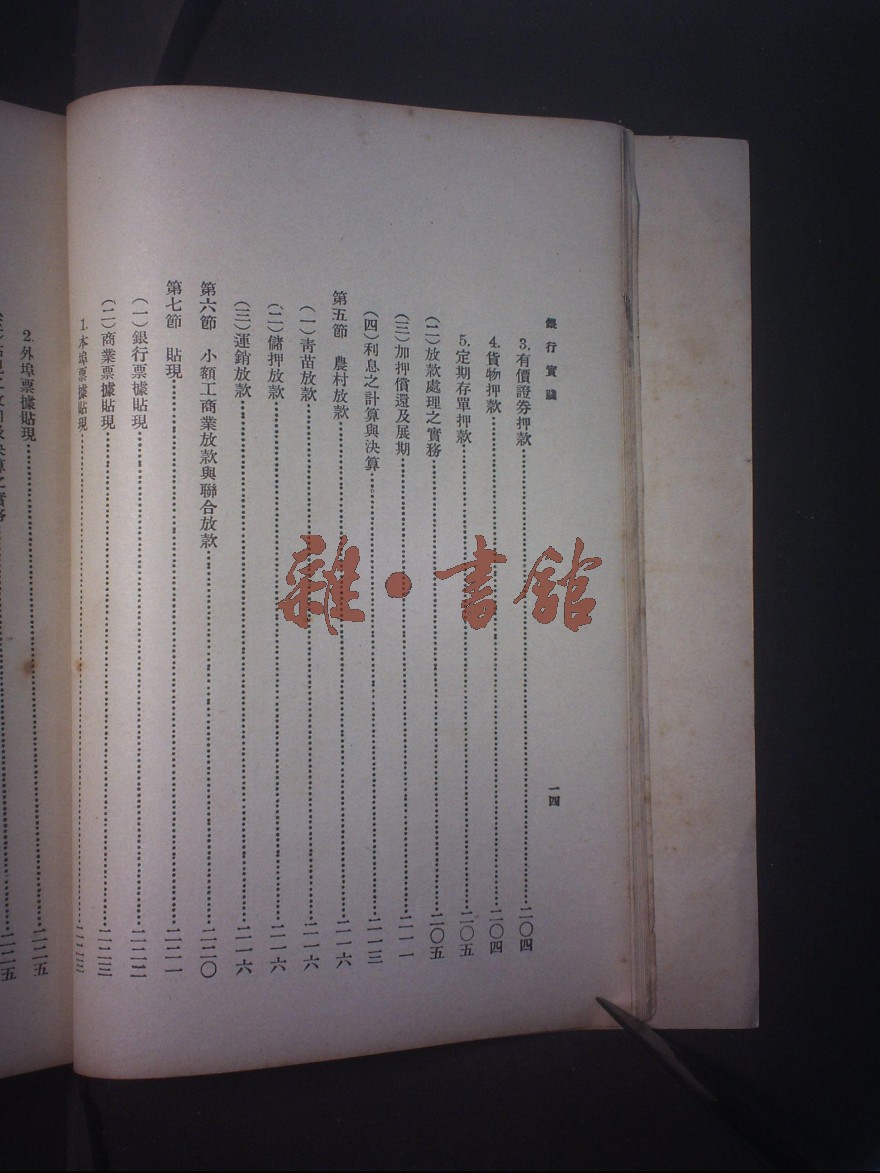 銀行實踐
一四
3.有價證券押款……二〇四
4.貨物押款……二〇四
5.定期存單押款……二〇五
(二)放款處理之實務……二〇五
(三)加押償還及展期……二一一
(四)利息之計算與決算……二一三
第五節 農村放款……二一六
(一)靑苗放款……二一六
(二)儲押放款……二一六
(三)運銷放款……二一六
第六節 小額工商業放款與聯合放款……二二〇
第七節 貼現……二二一
(一)銀行票據貼現……二二二
(二)商業票據貼現……二二三
1.本埠票據貼現……二二三
2.外埠票據貼現……二二五
二二五
雜·書館